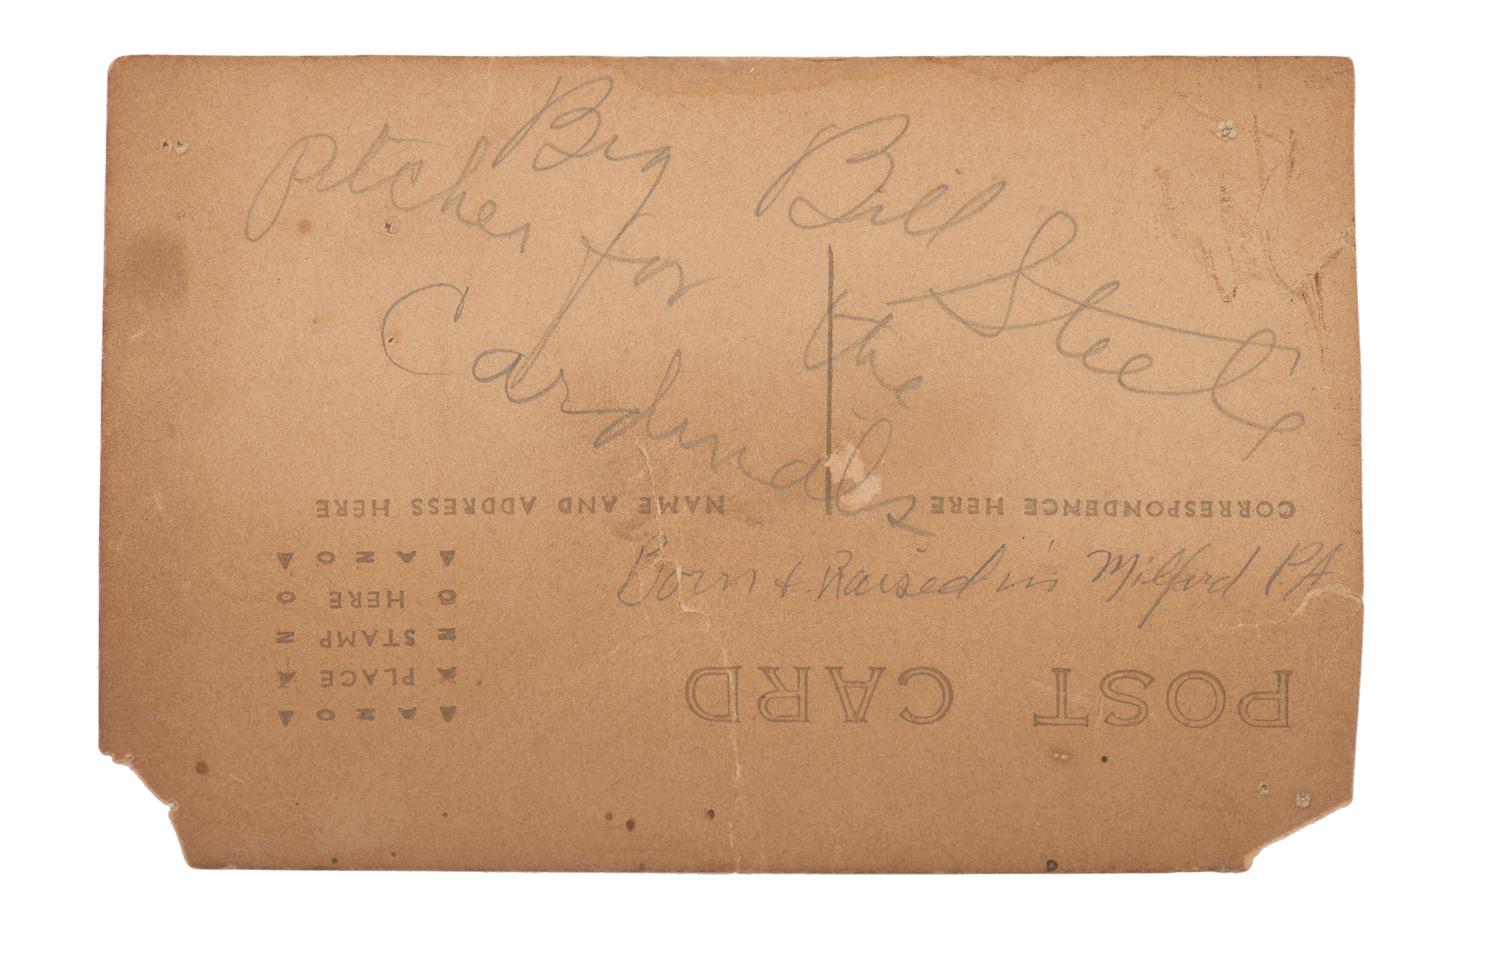 Big Bill Steele
Pitcher for the
Cardinals
Born + Raised in Milford PA
POST CARD
CORRESPONDENCE HERE
NAME AND ADDRESS HERE
A A Z O A
A PLACE A
Z STAMP Z
O HERE O
A A Z O A